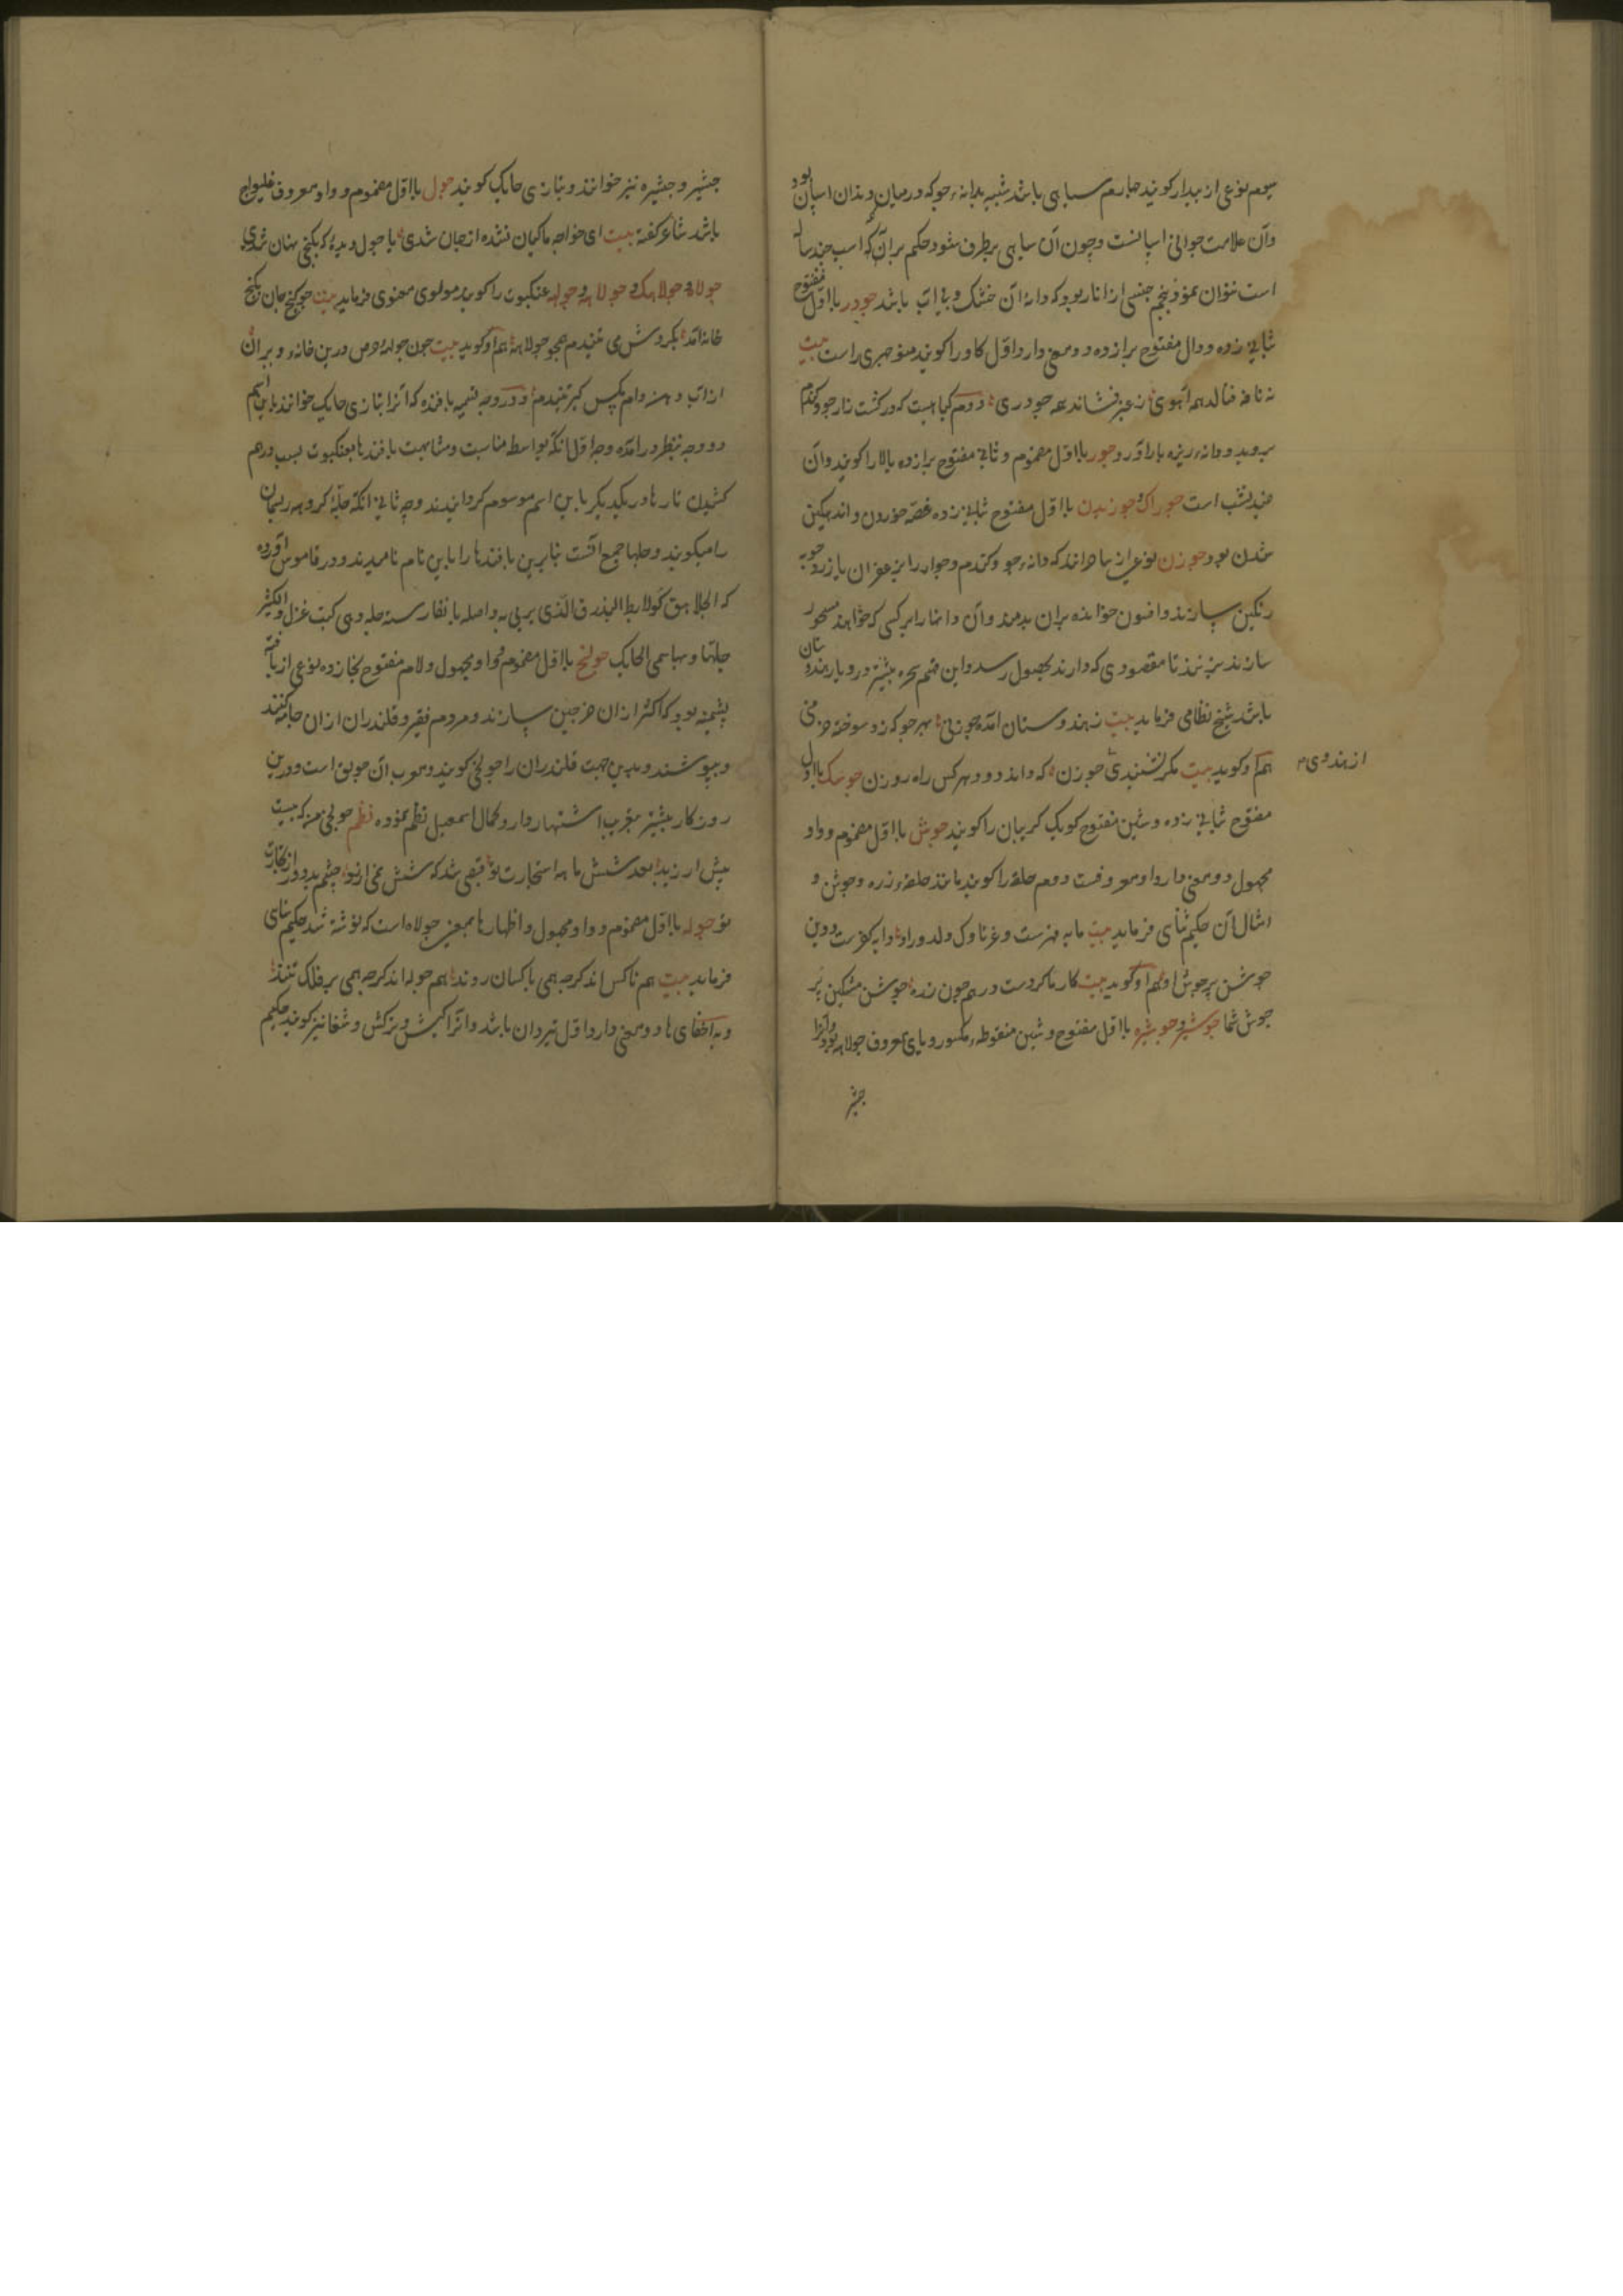 سوم نوعی از بیدار کویند چهارم سیاهی باشد شبیه بدانه جو که در میان دندان اسپان بود
وآن علامت جوانی اسپانست وچون آن سیاهی برطرف شود حکم بر آن که اسپ چند ساله
است نتوان نمود پنجم جنسی از انار بود که دانه آن خشک و بی آب باشد جودر با اول مفتوح
بثانی زده ودال مفتوح برا زده دو معنی دارد اول کاو را کویند منوچهری راست بیت
نه نافه همه آهوی ز عنبر فشاند همه جودری دوم کیاهیست که در کشت زار جو و کندم
بروید و دانه ریزه بار آورد جور با اول مضموم و ثانی مفتوح برا زده بالا را کویند وآن
ضد نشیب است جوراک و جوزیدن با اول مفتوح بثانی زده غصه خوردن واندهکین
شدن بود جوزن نوعی از ساحرانند که دانه جو وکندم وجوارد را بزعفران یا زردچوبه
رنکین سازند وافسون خوانده بران بدمند وآن دانها را بر کسی که خواهند مسحور
سازند بزنند تا مقصودی که دارند بحصول رسد واین قسم سحره بیشتر در دیار هندوستان
باشد شیخ نظامی فرماید بیت ز هندوستان آمده جوزنی بهر جو که زد سوخته خرمنی
هم او کوید بیت مکر نشنیدی جوزن که داند دود هر کس راه روزن جوسک با اول
از هندوی
مفتوح بثانی زده وسین مفتوح کوی کریبان را کویند جوش با اول مضموم وواو
مجهول دو معنی دارد اول معروفست دوم حلقه را کویند مانند حلقه زره وجوشن و
امثال آن حکیم سنایی فرماید بیت مایه فهرست وغر ناوک ولدوز او دایه کفرست ودین
جوشن پر جوش او هم او کوید بیت کار ما کردست درهم چون زره جوشن مشکین پر
جوش شما جوشیر وجوشیره با اول مفتوح وشین منقوطه مکسور ویای معروف جولاهه بود وآنرا
جشیر
جشیر و جشیره نیز خوانند وبتازی حایک کویند جول با اول مضموم وواو معروف غلیواج
باشد شاعر کفته بیت ای خواجه ماکیان نشده از جهان شدی یا جول دیده که بکنجی نهان شدی
جولاه جولاهک و جولاهه وجوله عنکبوت را کویند مولوی معنوی فرماید بیت جو کنج جان بکنج
خانه آمد بکردش می تنیدم همچو جولاهه هم او کوید بیت چون جوله حرص درین خانه ویران
از آب دهن دام مکس کیر تنیدم ودر وجه تسمیه بافنده که آنرا بتازی حایک خوانند باین اسم
دو وجه بنظر در آمده وجه اول آنکه بواسطه مناسبت ومشابهت بافنده با عنکبوت بسبب درهم
کشیدن تارها در یکدیکر باین اسم موسوم کردانیدند وجه ثانی آنکه جله کروهه ریسمان
را میکویند وجلها جمع آنست بنابرین بافنده را باین نام نامیدند ودر قاموس آورده
که الجلاهق کعلابط البندق الذی یرمی به واصله بالفارسیة جله وهی کبة غزل والکثیر
جلها وبها سمی الحایک جولخ با اول مضموم وواو مجهول ولام مفتوح بخا زده نوعی از بافته
پشمینه بود که اکثر از آن خرجین سازند ومردم فقیر وقلندران از آن جامه کنند
وبپوشند وبدین جهت قلندران را جولخی کویند ومعرب آن جولق است ودرین
روزکار بیشتر بتعریب اشتهار دارد کمال اسمعیل نظم نموده نظم جولخی من که بیست
بیش ارزید بعد شش ماه استجارت تو قبضی شد که شش نمی ارزد چشم بد دور از تجارت
تو جوله با اول مضموم وواو مجهول واظهار ها بمعنی جولاه است که نوشته شد حکیم سنایی
فرماید بیت هم ناکس اند کرچه همی با کسان روند هم جوله اند کرچه همی بر فلک تنند
وباخفای ها دو معنی دارد اول تیردان باشد وآنرا کیش وترکش وشغا نیز کویند حکیم